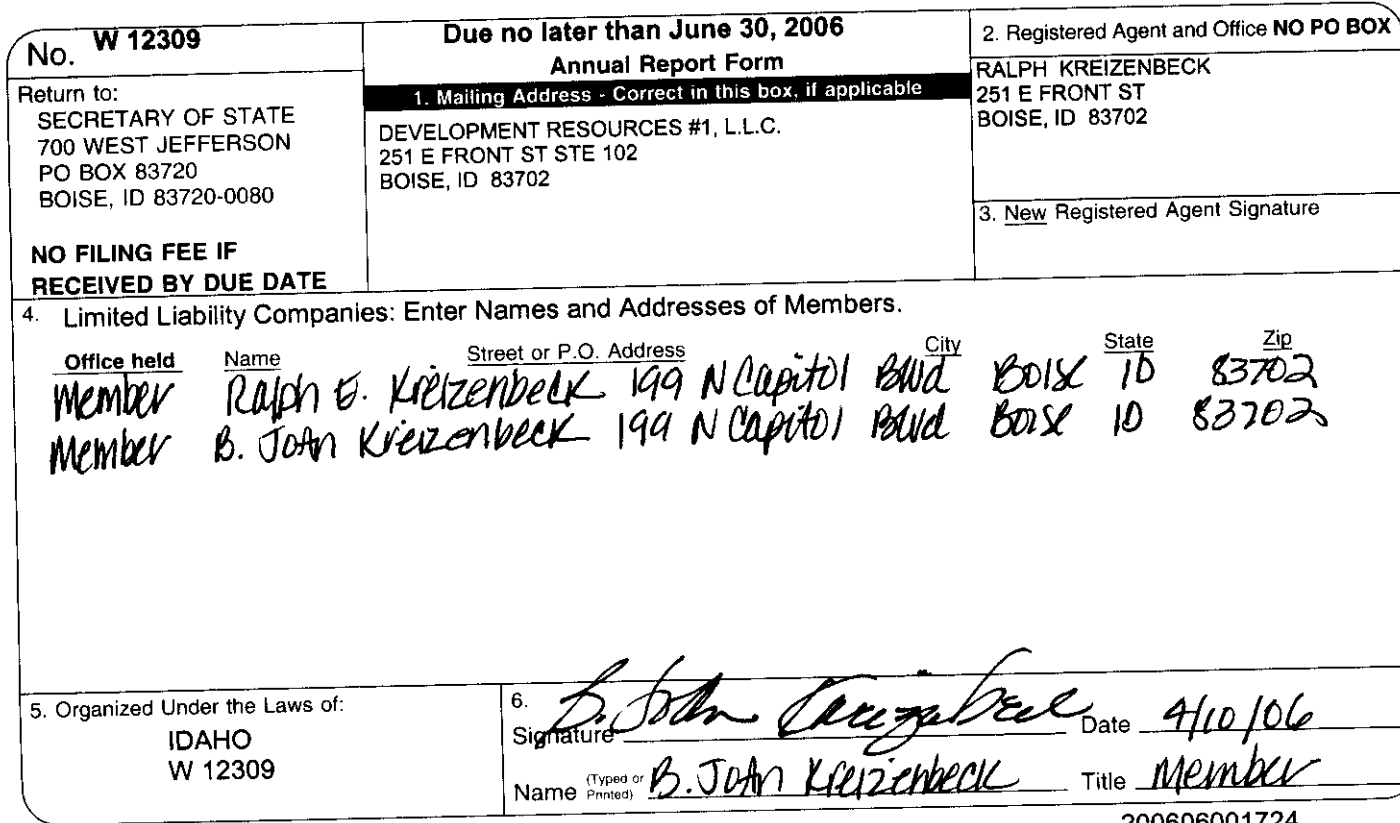 No. W 12309
Return to:
SECRETARY OF STATE
700 WEST JEFFERSON
PO BOX 83720
BOISE, ID 83720-0080
NO FILING FEE IF
RECEIVED BY DUE DATE
Due no later than June 30, 2006
Annual Report Form
1. Mailing Address - Correct in this box, if applicable
DEVELOPMENT RESOURCES #1, L.L.C.
251 E FRONT ST STE 102
BOISE, ID 83702
2. Registered Agent and Office NO PO BOX
RALPH KREIZENBECK
251 E FRONT ST
BOISE, ID 83702
3. New Registered Agent Signature
4. Limited Liability Companies: Enter Names and Addresses of Members.
Office held Name Street or P.O. Address City State Zip
Member Ralph E. Kreizenbeck 199 N Capitol Blvd Boise ID 83702
Member B. John Kreizenbeck 199 N Capitol Blvd Boise ID 83702
5. Organized Under the Laws of:
IDAHO
W 12309
6.
Signature B. John Kreizenbeck Date 4/10/06
Name (Typed or Printed) B. John Kreizenbeck Title Member
200606001724